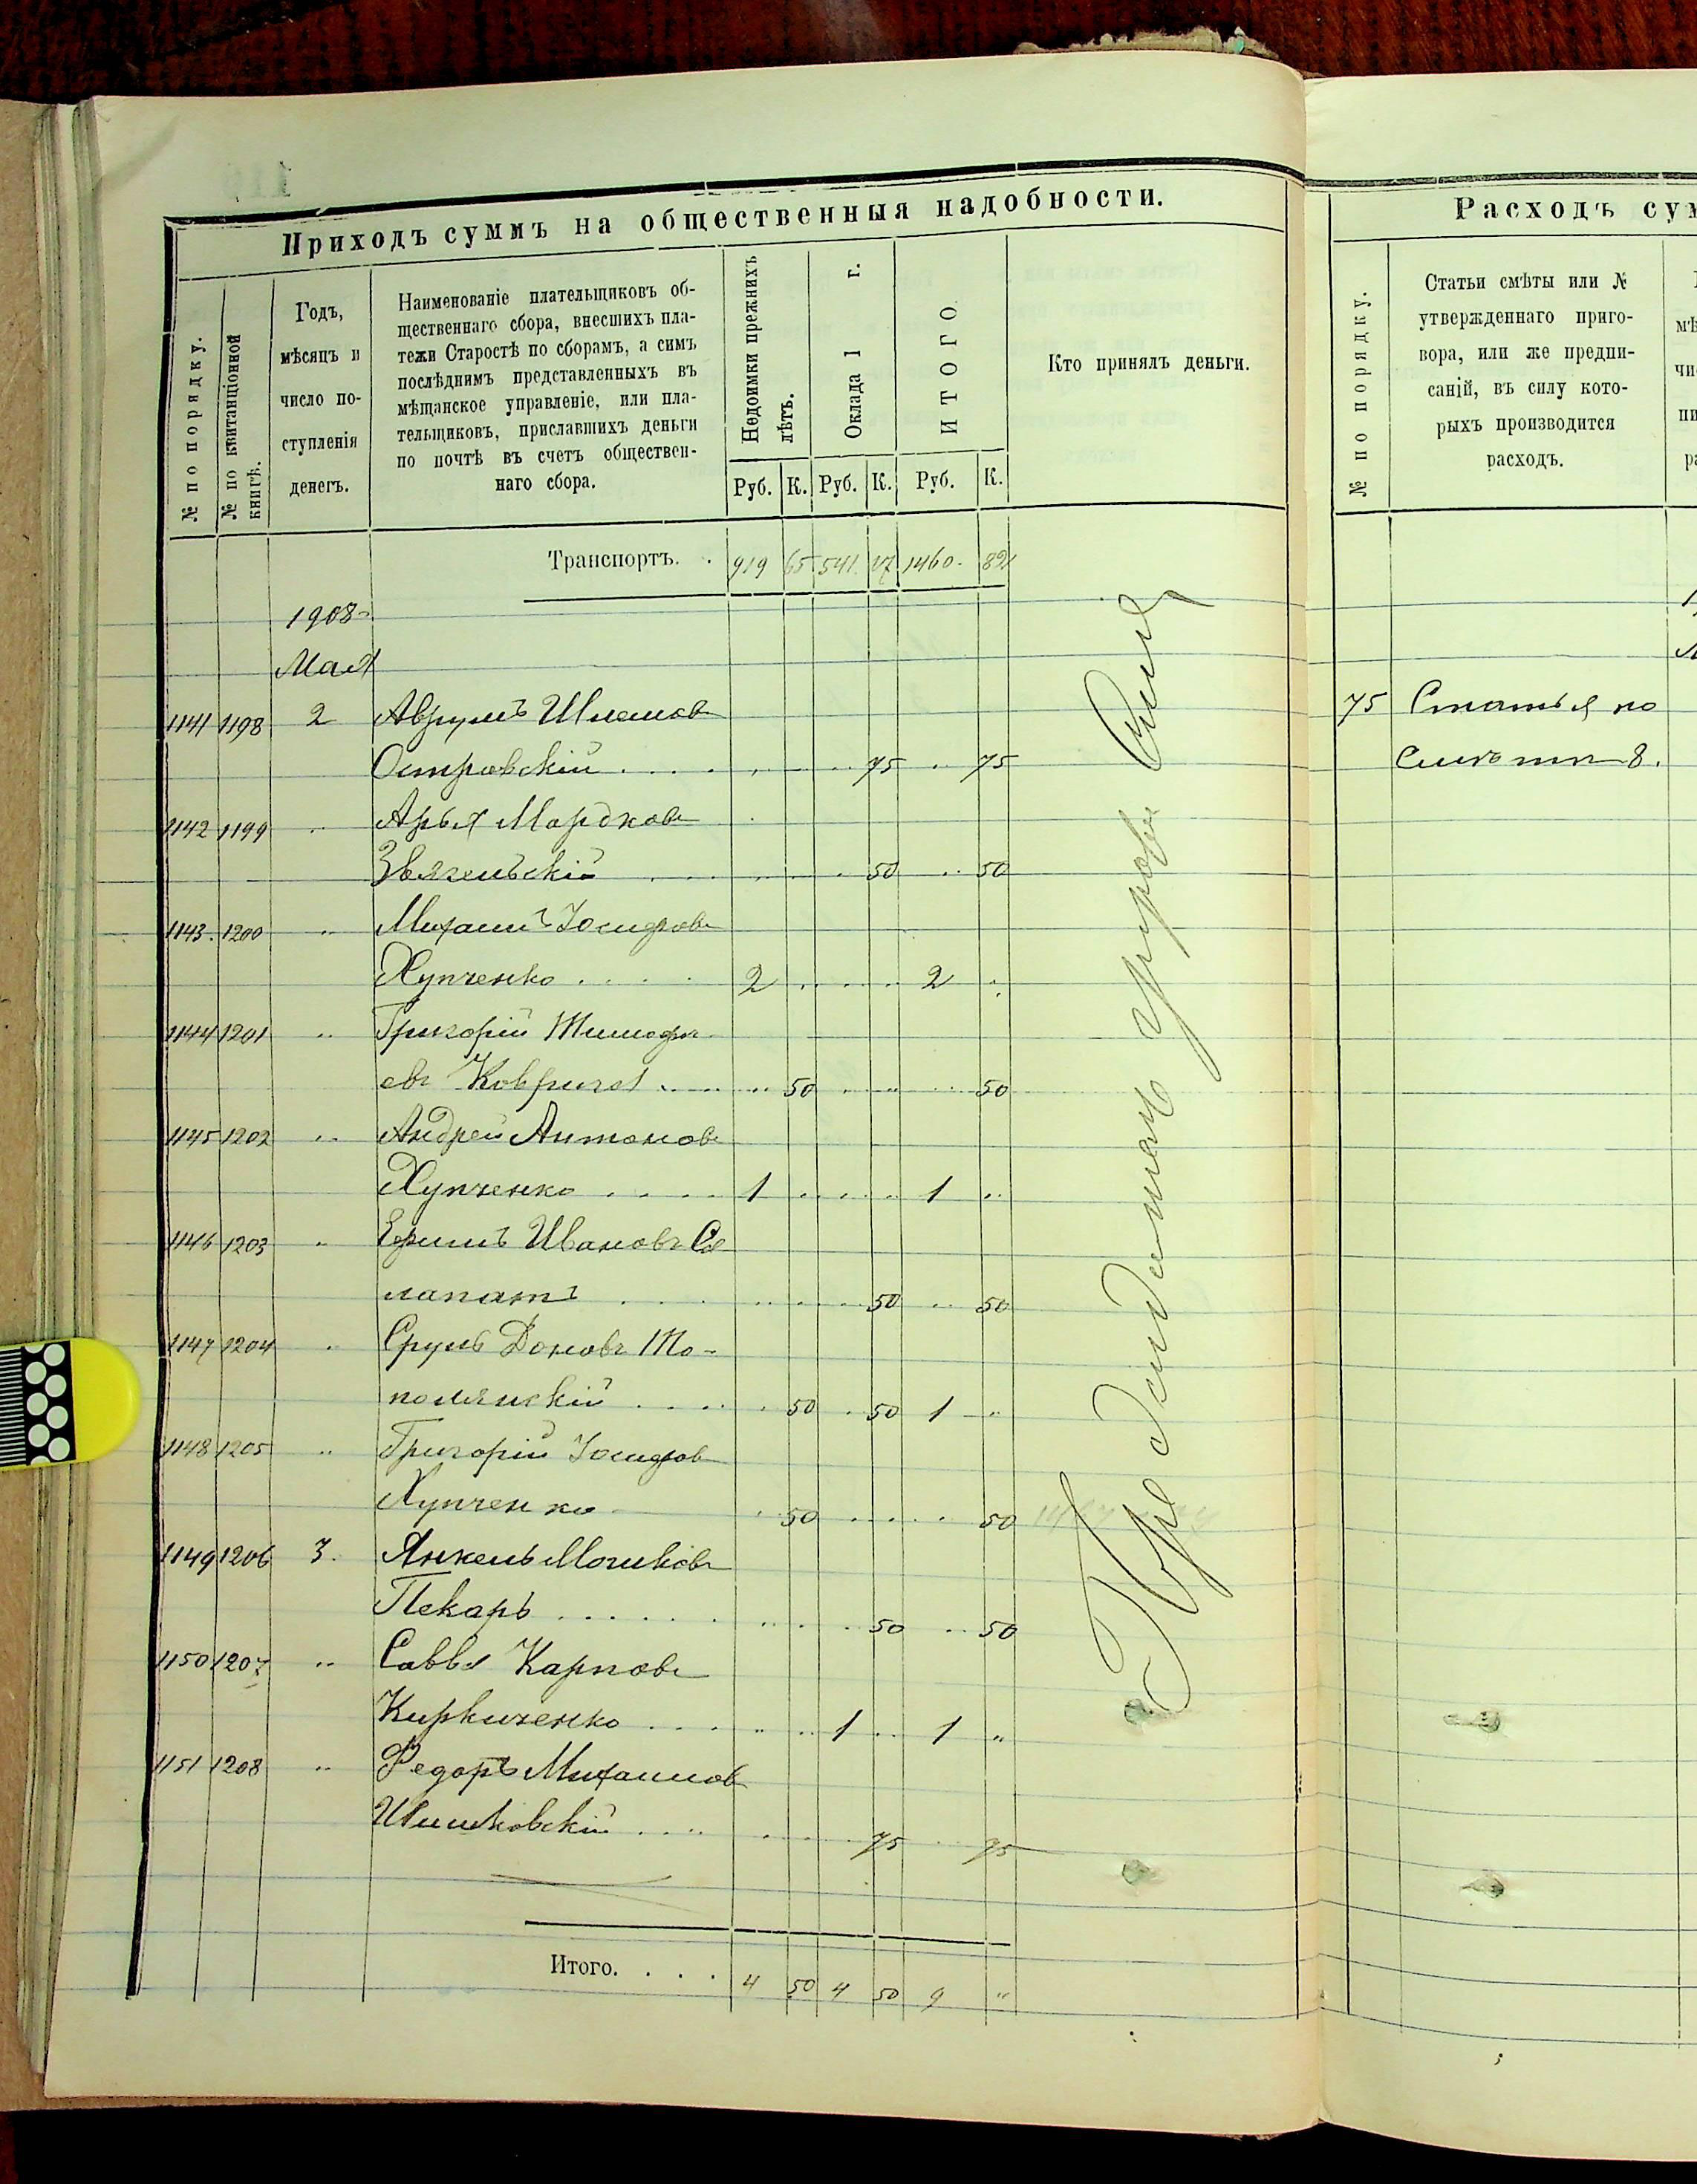 Приходъ суммъ на общественныя надобности.
№ по порядку.
№ по квитанціонной книгѣ.
Годъ,
мѣсяцъ и
число по-
ступленія
денегъ.
Наименованіе плательщиковъ об-
щественнаго сбора, внесшихъ пла-
тежи Старостѣ по сборамъ, а симъ
послѣднимъ представленныхъ въ
мѣщанское управленіе, или пла-
тельщиковъ, приславшихъ деньги
по почтѣ въ счетъ обществен-
наго сбора.
Недоимки прежнихъ лѣтъ.
Оклада 1 г.
ИТОГО
Кто принялъ деньги.
Руб. К. Руб. К. Руб. К.
Транспортъ. . 919 65 541 17 1460 89
1908
Мая
1141 1198 2 Аврумъ Шлемов
Островскій . . . . 75 75
1142 1199 " Арья Мордков
Звягельскій 50 50
1143. 1200 " Михаилъ Іосифов
Хупченко . . . . 2 2
1144 1201 " Григорій Тимофе
евъ Коврига 50 50
1145 1202 " Андрей Антонов
Хупченко . . . . 1 1
1146 1203 " Ефимъ Ивановъ Са
лапатъ 50 50
1147 1204 " Сруль Доновъ То-
полянскій . . . . 50 50 1 "
1148 1205 " Григорій Іосифов
Хупченко 50 50
1149 1206 3. Янкель Мошков
Пекарь . . . . . 50 50
1150 1207 " Савва Карпов
Кириченко . . . . 1 1 "
1151 1208 " Федоръ Михаилов
Шишковскій . . . . 75 75
Итого. . . . 4 50 4 50 9 "
Расходъ сум
№ по порядку.
Статьи смѣты или №
утвержденнаго приго-
вора, или же предпи-
саній, въ силу кото-
рыхъ производится
расходъ.
75 Статья по
смѣтѣ 8.